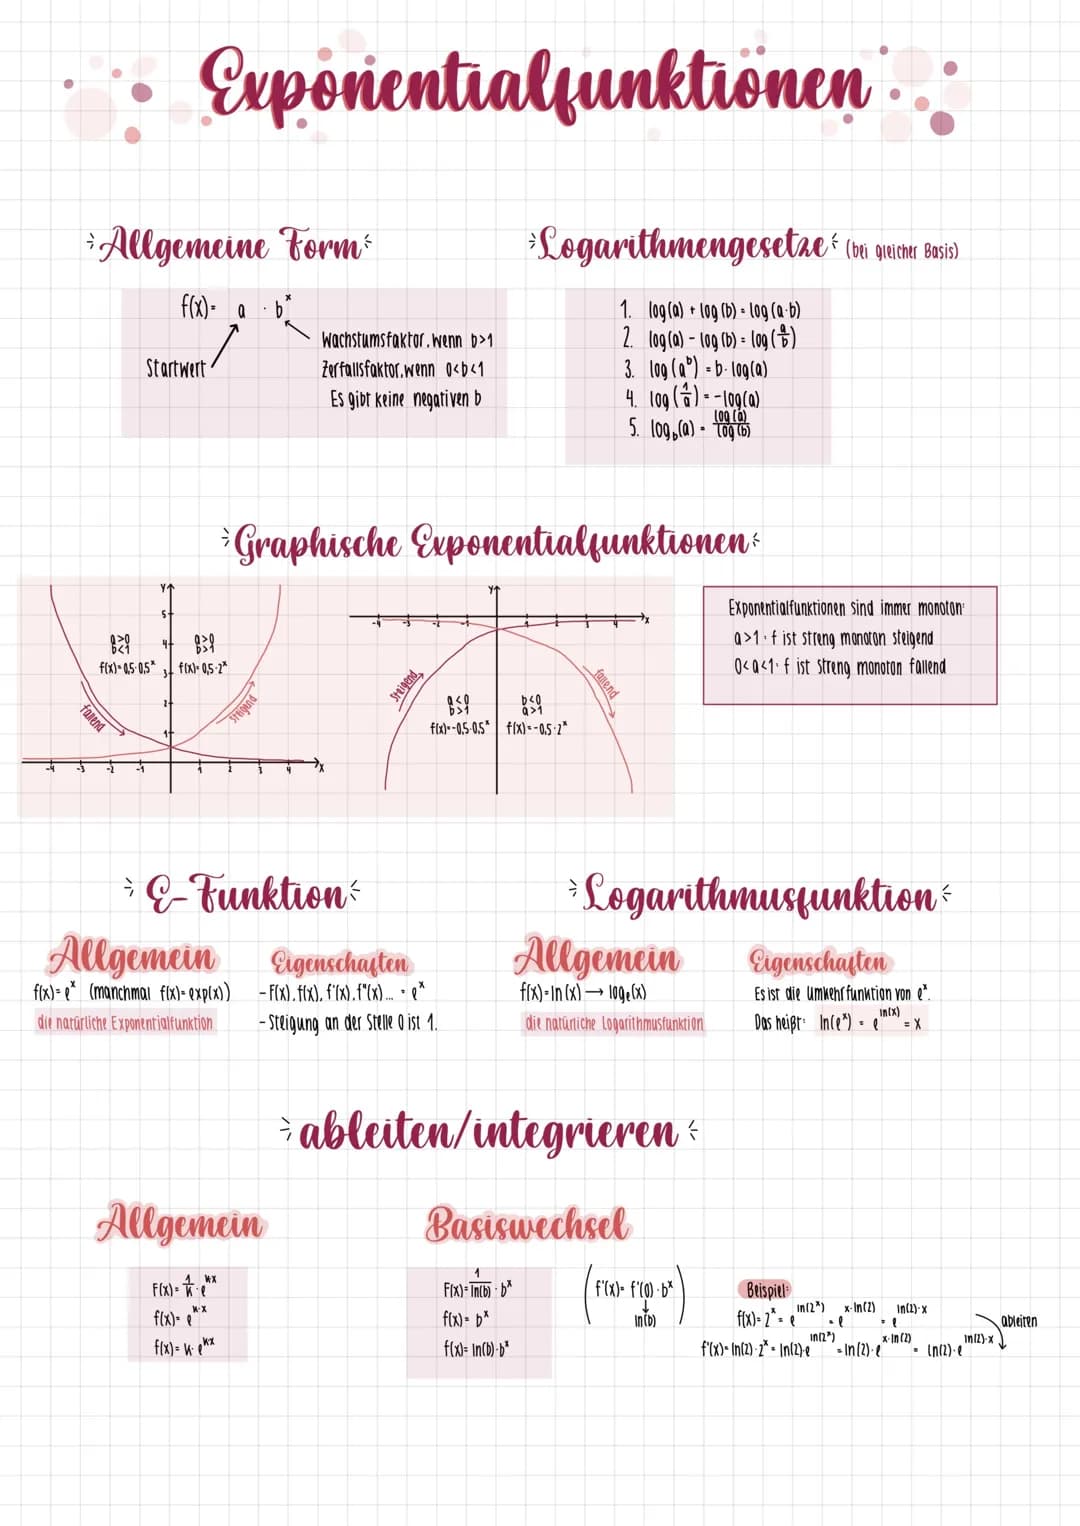 Exponentialfunktionen
Allgemeine Form
f(x)= a · b^x
Startwert
Wachstumsfaktor, wenn b>1
Zerfallsfaktor, wenn 0<b<1
Es gibt keine negativen b
Logarithmengesetze (bei gleicher Basis)
1. log(a) + log(b) = log(a·b)
2. log(a) - log(b) = log(a/b)
3. log(a^b) = b·log(a)
4. log(1/a) = -log(a)
5. log_b(a) = log(a)/log(b)
Graphische Exponentialfunktionen
y
5
4
3
2
1
-4 -3 -2 -1 1 2 3 4 x
a>0
b<1
f(x)=0,5·0,5^x
a>0
b>1
f(x)=0,5·2^x
fallend
steigend
y
-4 -3 -2 -1 1 2 3 4 x
steigend
fallend
a<0
f(x)=-0,5·0,5^x
b<0
a>1
f(x)=-0,5·2^x
Exponentialfunktionen sind immer monoton:
a>1: f ist streng monoton steigend
0<a<1: f ist streng monoton fallend
E-Funktion
Allgemein
f(x)= e^x (manchmal f(x)=exp(x))
die natürliche Exponentialfunktion
Eigenschaften
- F(x), f(x), f'(x), f"(x)... = e^x
- Steigung an der Stelle 0 ist 1.
Logarithmusfunktion
Allgemein
f(x)=ln(x) → log_e(x)
die natürliche Logarithmusfunktion
Eigenschaften
Es ist die Umkehrfunktion von e^x.
Das heißt: ln(e^x) = e^ln(x) = x
ableiten/integrieren
Allgemein
F(x)= 1/k · e^kx
f(x)= e^k·x
f(x)= k· e^kx
Basiswechsel
F(x)= 1/ln(b) · b^x
f(x)= b^x
f(x)= ln(b)·b^x
(f'(x)= f'(0)·b^x)
↓
ln(b)
Beispiel:
f(x)= 2^x = e^ln(2^x) = e^x·ln(2) = e^ln(2)·x
ableiten
f'(x)= ln(2)·2^x = ln(2)·e^ln(2^x) = ln(2)·e^x·ln(2) = ln(2)·e^ln(2)·x